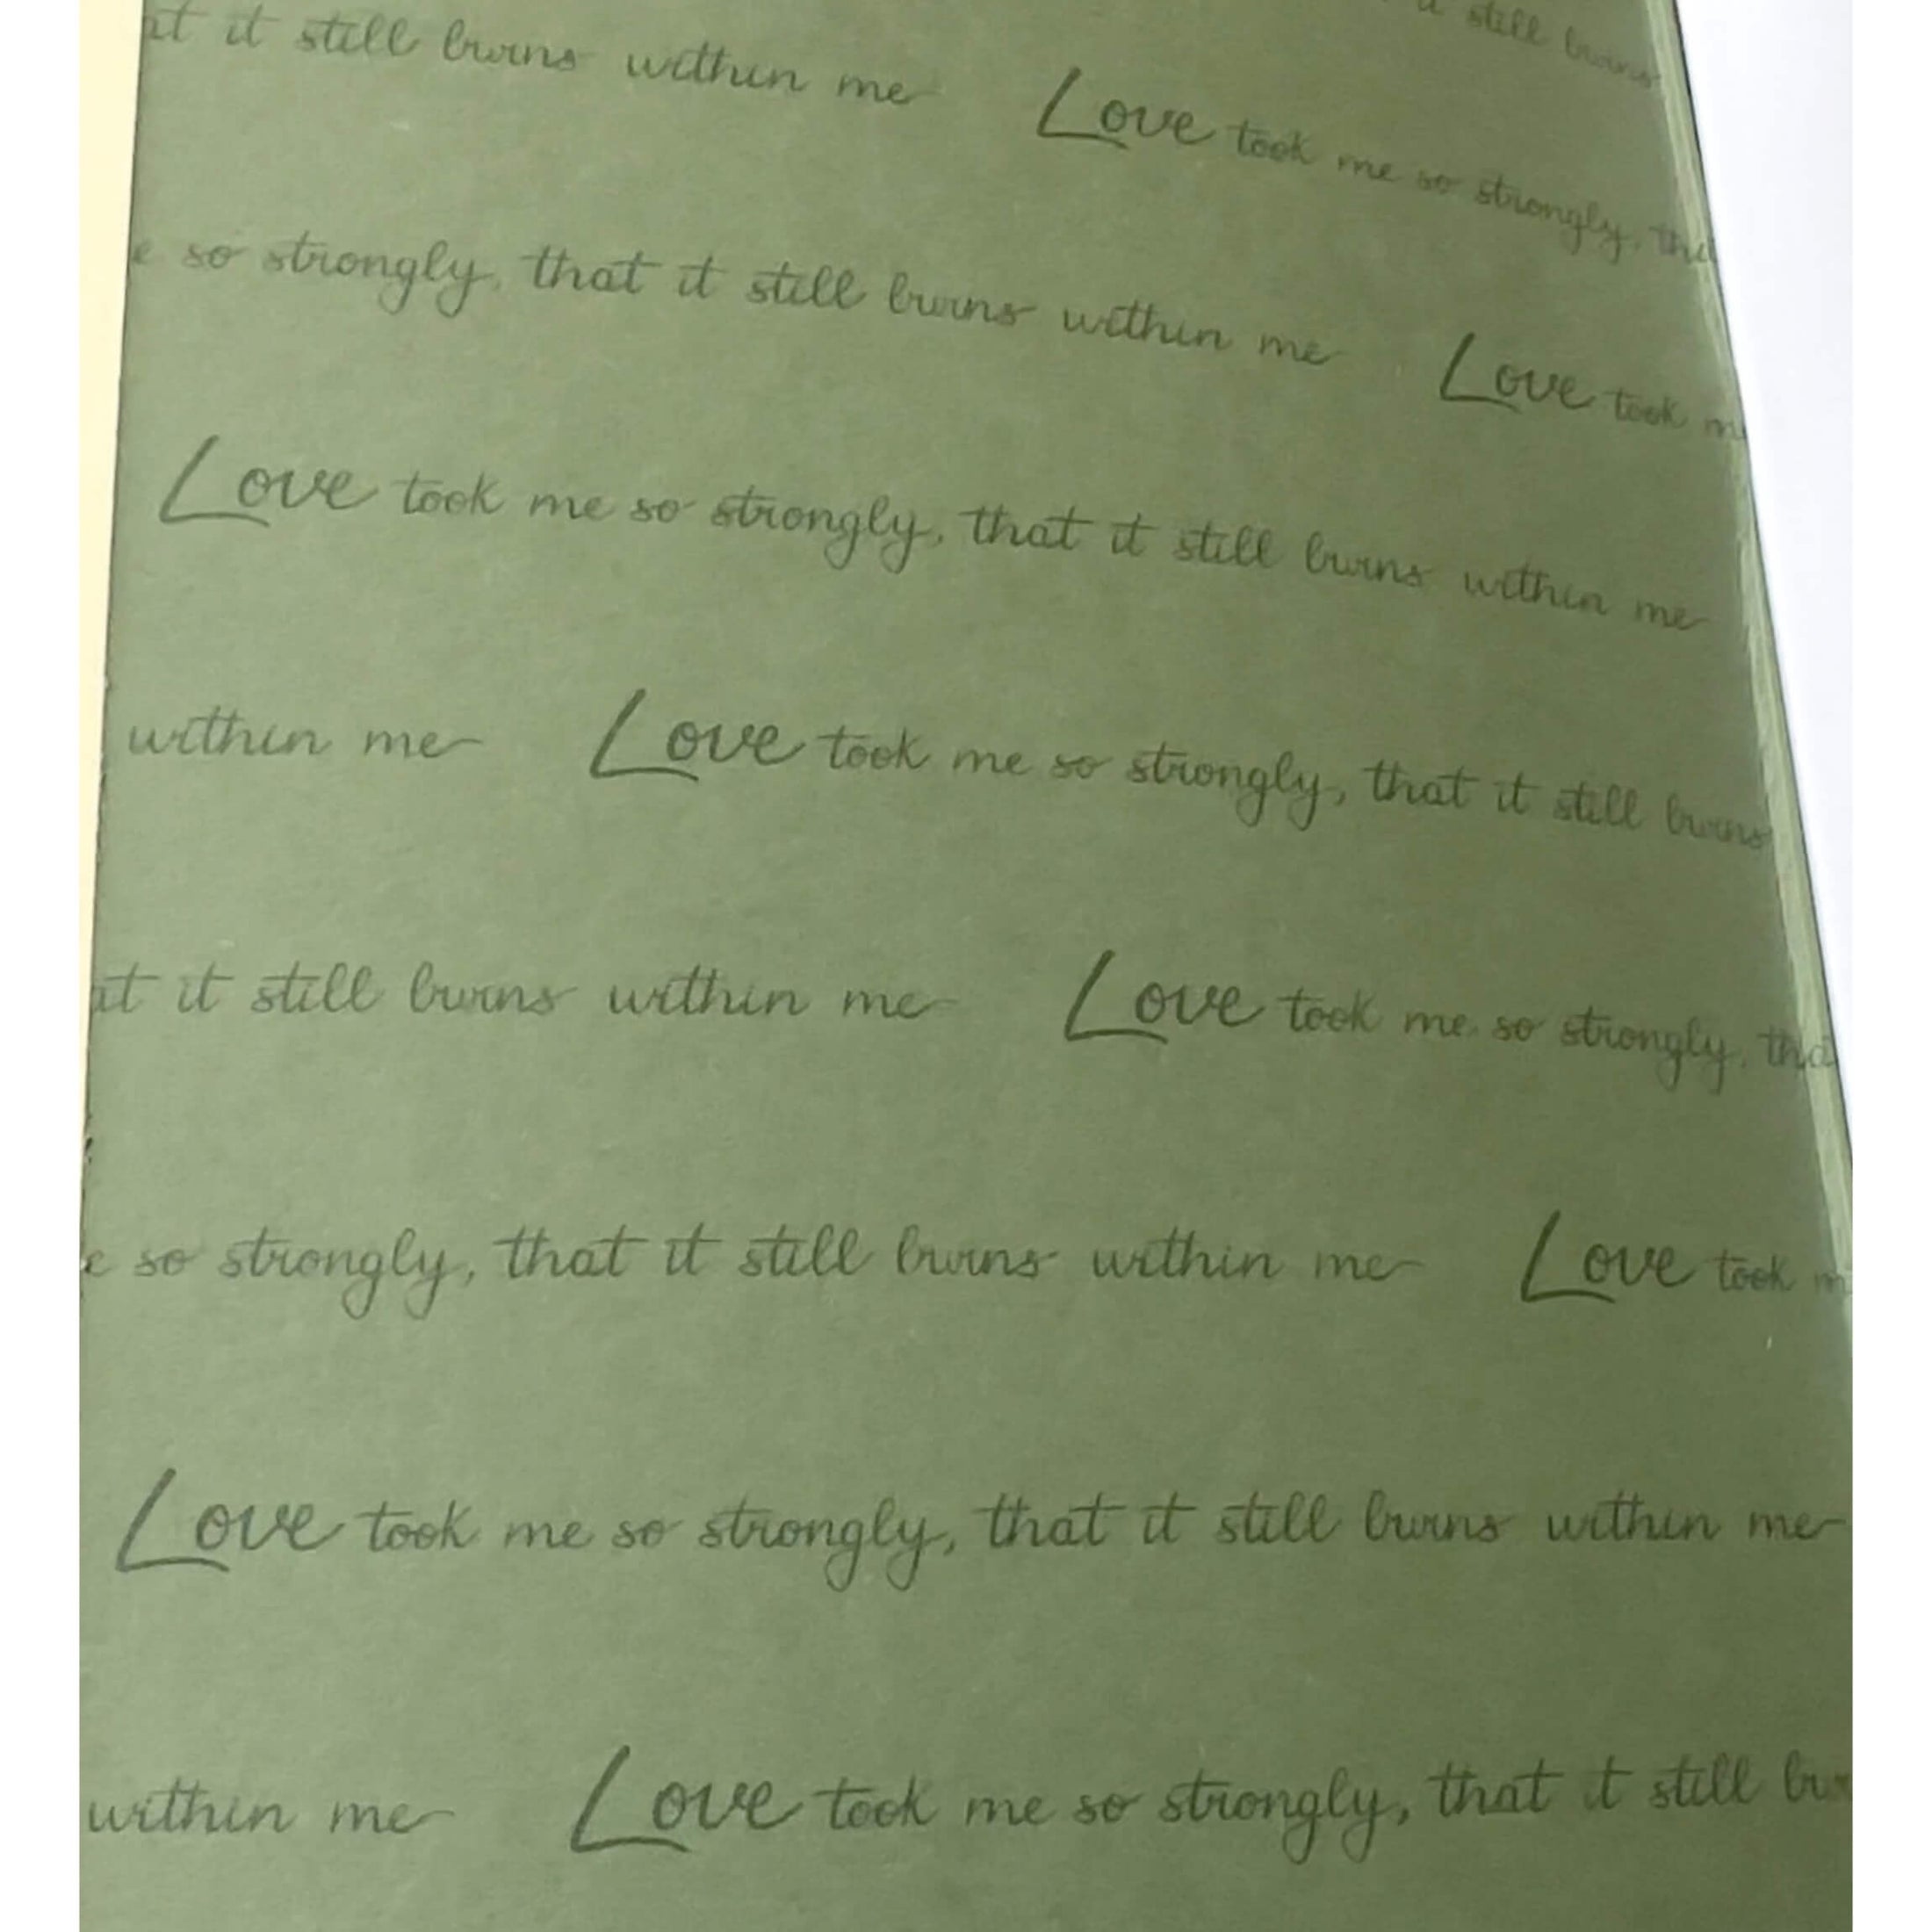 it still burns
it still burns within me Love took me so strongly,
so strongly, that it still burns within me Love took
Love took me so strongly, that it still burns within me
within me Love took me so strongly, that it still burns
it still burns within me Love took me so strongly,
so strongly, that it still burns within me Love took
Love took me so strongly, that it still burns within me
within me Love took me so strongly, that it still